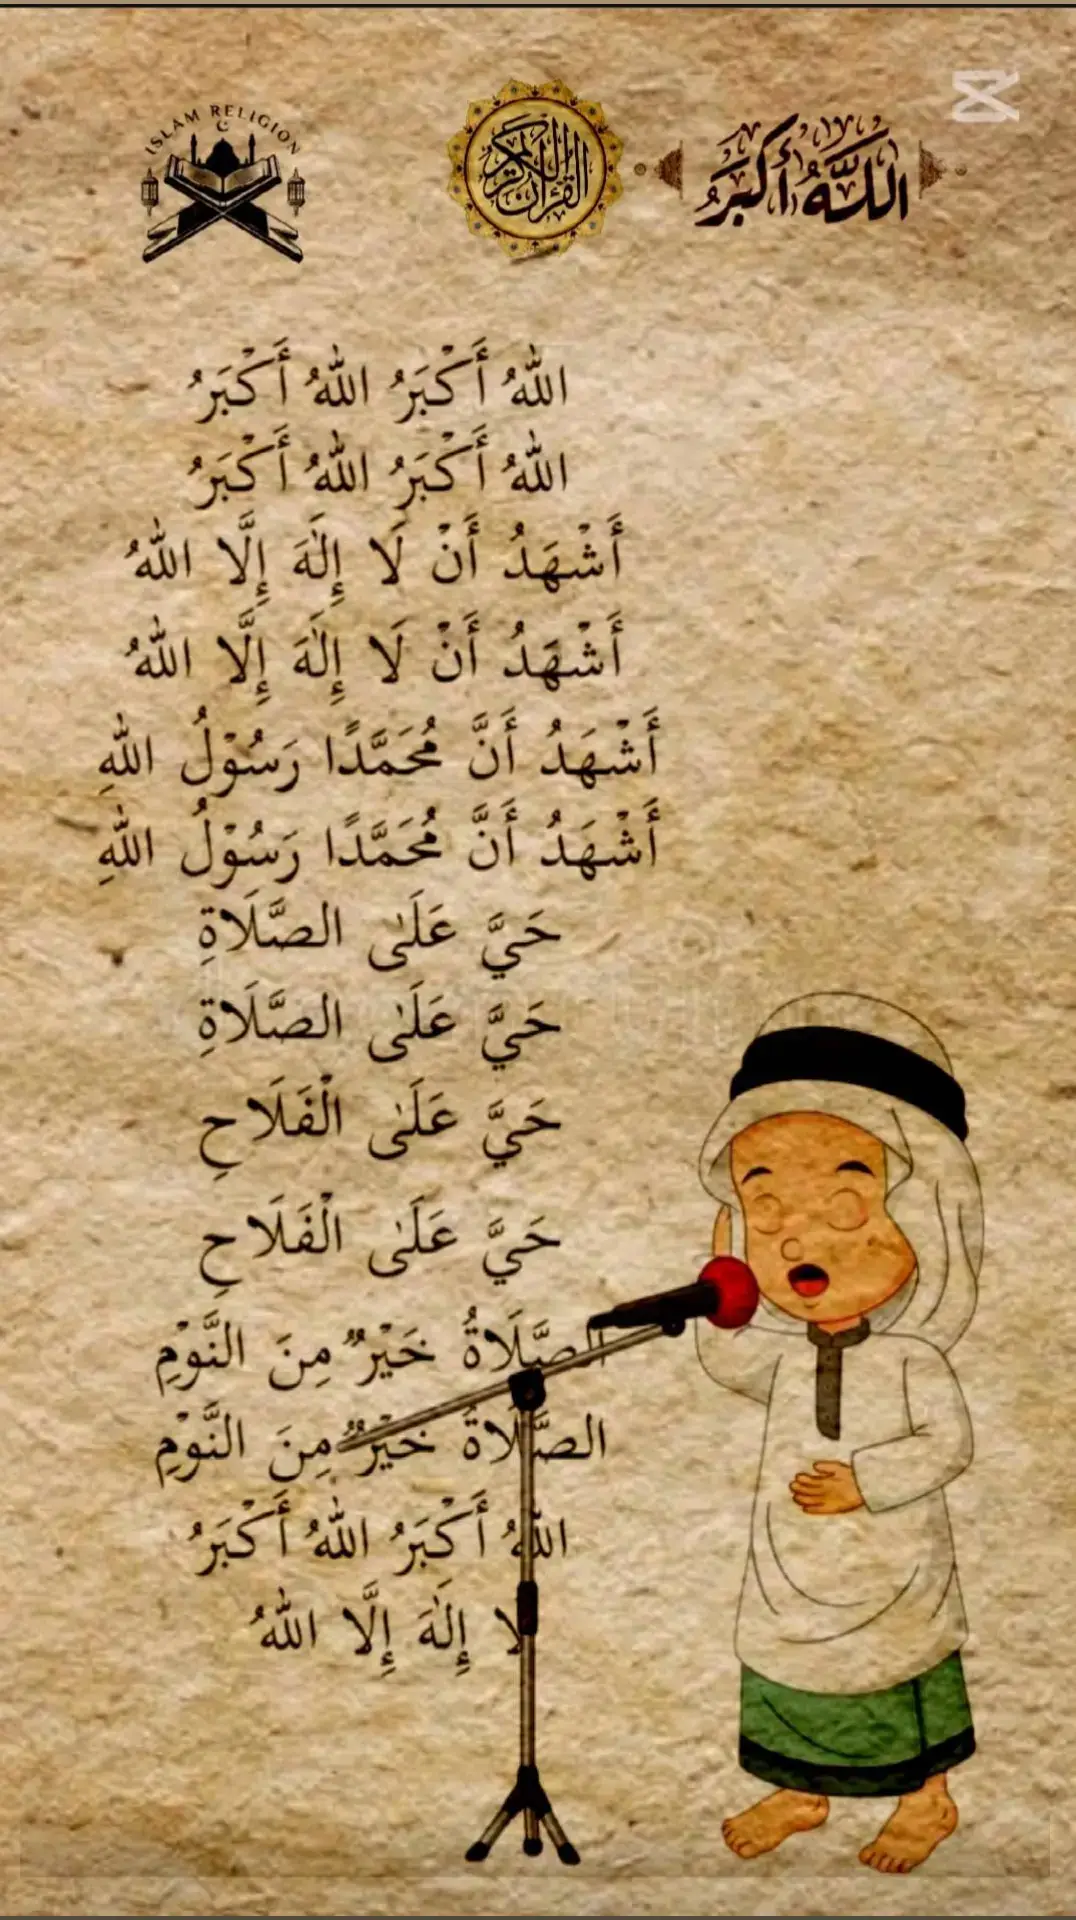 ISLAM RELIGION
القرآن الكريم
الله أكبر
اللهُ أَكْبَرُ اللهُ أَكْبَرُ
اللهُ أَكْبَرُ اللهُ أَكْبَرُ
أَشْهَدُ أَنْ لَا إِلٰهَ إِلَّا اللهُ
أَشْهَدُ أَنْ لَا إِلٰهَ إِلَّا اللهُ
أَشْهَدُ أَنَّ مُحَمَّدًا رَسُوْلُ اللهِ
أَشْهَدُ أَنَّ مُحَمَّدًا رَسُوْلُ اللهِ
حَيَّ عَلَىٰ الصَّلَاةِ
حَيَّ عَلَىٰ الصَّلَاةِ
حَيَّ عَلَىٰ الْفَلَاحِ
حَيَّ عَلَىٰ الْفَلَاحِ
الصَّلَاةُ خَيْرٌ مِنَ النَّوْمِ
الصَّلَاةُ خَيْرٌ مِنَ النَّوْمِ
اللهُ أَكْبَرُ اللهُ أَكْبَرُ
لا إِلٰهَ إِلَّا اللهُ